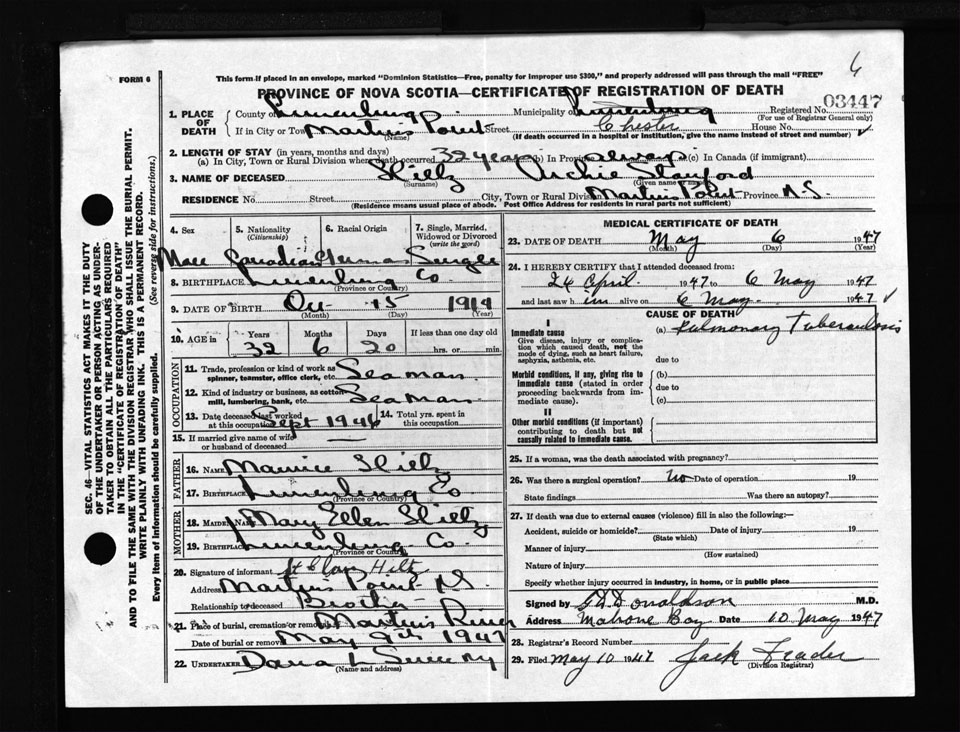 6
FORM 6
This form if placed in an envelope, marked "Dominion Statistics—Free, penalty for improper use $300," and properly addressed will pass through the mail "FREE"
PROVINCE OF NOVA SCOTIA—CERTIFICATE OF REGISTRATION OF DEATH
03447
1. PLACE OF DEATH
County of Lunenburg Municipality of Lunenburg Registered No.
(For use of Registrar General only)
If in City or Town Martins Point Street Chester House No. ✓
(Name) (If death occurred in a hospital or institution, give the name instead of street and number)
2. LENGTH OF STAY (in years, months and days)
(a) In City, Town or Rural Division where death occurred 32 years (b) In Province always (c) In Canada (if immigrant)
3. NAME OF DECEASED Archie
(Surname) (Given name or names)
RESIDENCE No. Street City, Town or Rural Division Martins Point Province N.S.
(Residence means usual place of abode. Post Office Address for residents in rural parts not sufficient)
4. Sex 5. Nationality (Citizenship) 6. Racial Origin 7. Single, Married, Widowed or Divorced (write the word)
Male Canadian German Single
8. BIRTHPLACE Lunenburg Co
(Province or Country)
9. DATE OF BIRTH Oct 15 1914
(Month) (Day) (Year)
10. AGE in Years Months Days If less than one day old
32 6 20 hrs. or min.
OCCUPATION
11. Trade, profession or kind of work as spinner, teamster, office clerk, etc. Seaman
12. Kind of industry or business, as cotton mill, lumbering, bank, etc. Seaman
13. Date deceased last worked at this occupation Sept 1946 14. Total yrs. spent in this occupation
15. If married give name of wife or husband of deceased —
FATHER
16. NAME Maurice
17. BIRTHPLACE Lunenburg Co
(Province or Country)
MOTHER
18. MAIDEN NAME Mary Ellen
19. BIRTHPLACE Lunenburg Co.
(Province or Country)
20. Signature of informant
Address Martins Point N.S.
Relationship to deceased Brother
21. Place of burial, cremation or removal Martins River
Date of burial or removal May 9th 1947
22. UNDERTAKER
(Name and address)
MEDICAL CERTIFICATE OF DEATH
23. DATE OF DEATH May 6 1947
(Month) (Day) (Year)
24. I HEREBY CERTIFY that I attended deceased from:
24 April 1947 to 6 May 1947
and last saw h im alive on 6 May 1947 ✓
CAUSE OF DEATH
I
Immediate cause (a) Pulmonary Tuberculosis
Give disease, injury or complication which caused death, not the mode of dying, such as heart failure, asphyxia, asthenia, etc.
due to
Morbid conditions, if any, giving rise to immediate cause (stated in order proceeding backwards from immediate cause).
(b)
due to
(c)
II
Other morbid conditions (if important) contributing to death but not causally related to immediate cause.
25. If a woman, was the death associated with pregnancy?
26. Was there a surgical operation? No Date of operation 19
State findings Was there an autopsy?
27. If death was due to external causes (violence) fill in also the following:—
Accident, suicide or homicide? Date of injury 19
(State which)
Manner of injury
(How sustained)
Nature of injury
Specify whether injury occurred in industry, in home, or in public place
Signed by Donaldson M.D.
Address Mahone Bay Date 10 May 1947
28. Registrar's Record Number
29. Filed May 10 1947 Jack
(Division Registrar)
SEC. 46—VITAL STATISTICS ACT MAKES IT THE DUTY
OF THE UNDERTAKER OR PERSON ACTING AS UNDER-
TAKER TO OBTAIN ALL THE PARTICULARS REQUIRED
IN THE "CERTIFICATE OF REGISTRATION OF DEATH"
AND TO FILE THE SAME WITH THE DIVISION REGISTRAR WHO SHALL ISSUE THE BURIAL PERMIT.
WRITE PLAINLY WITH UNFADING INK. THIS IS A PERMANENT RECORD.
Every item of information should be carefully supplied. (See reverse side for instructions.)